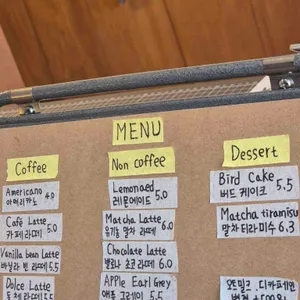 MENU
Coffee
Americano
아메리카노 4.0
Café Latte
카페라떼 5.0
Vanilla bean Latte
바닐라 빈 라떼 5.5
Dolce Latte
돌체라떼 5.5
Non coffee
Lemonaed
레몬에이드 5.0
Matcha Latte
유기농 말차 라떼 6.0
Chocolate Latte
발로나 초코 라떼 6.0
Apple Earl Grey
애플 그레이 5.5
Dessert
Bird Cake
버드 케이크 5.5
Matcha tiramisu
말차 티라미수 6.3
오트밀크 . 디카페인